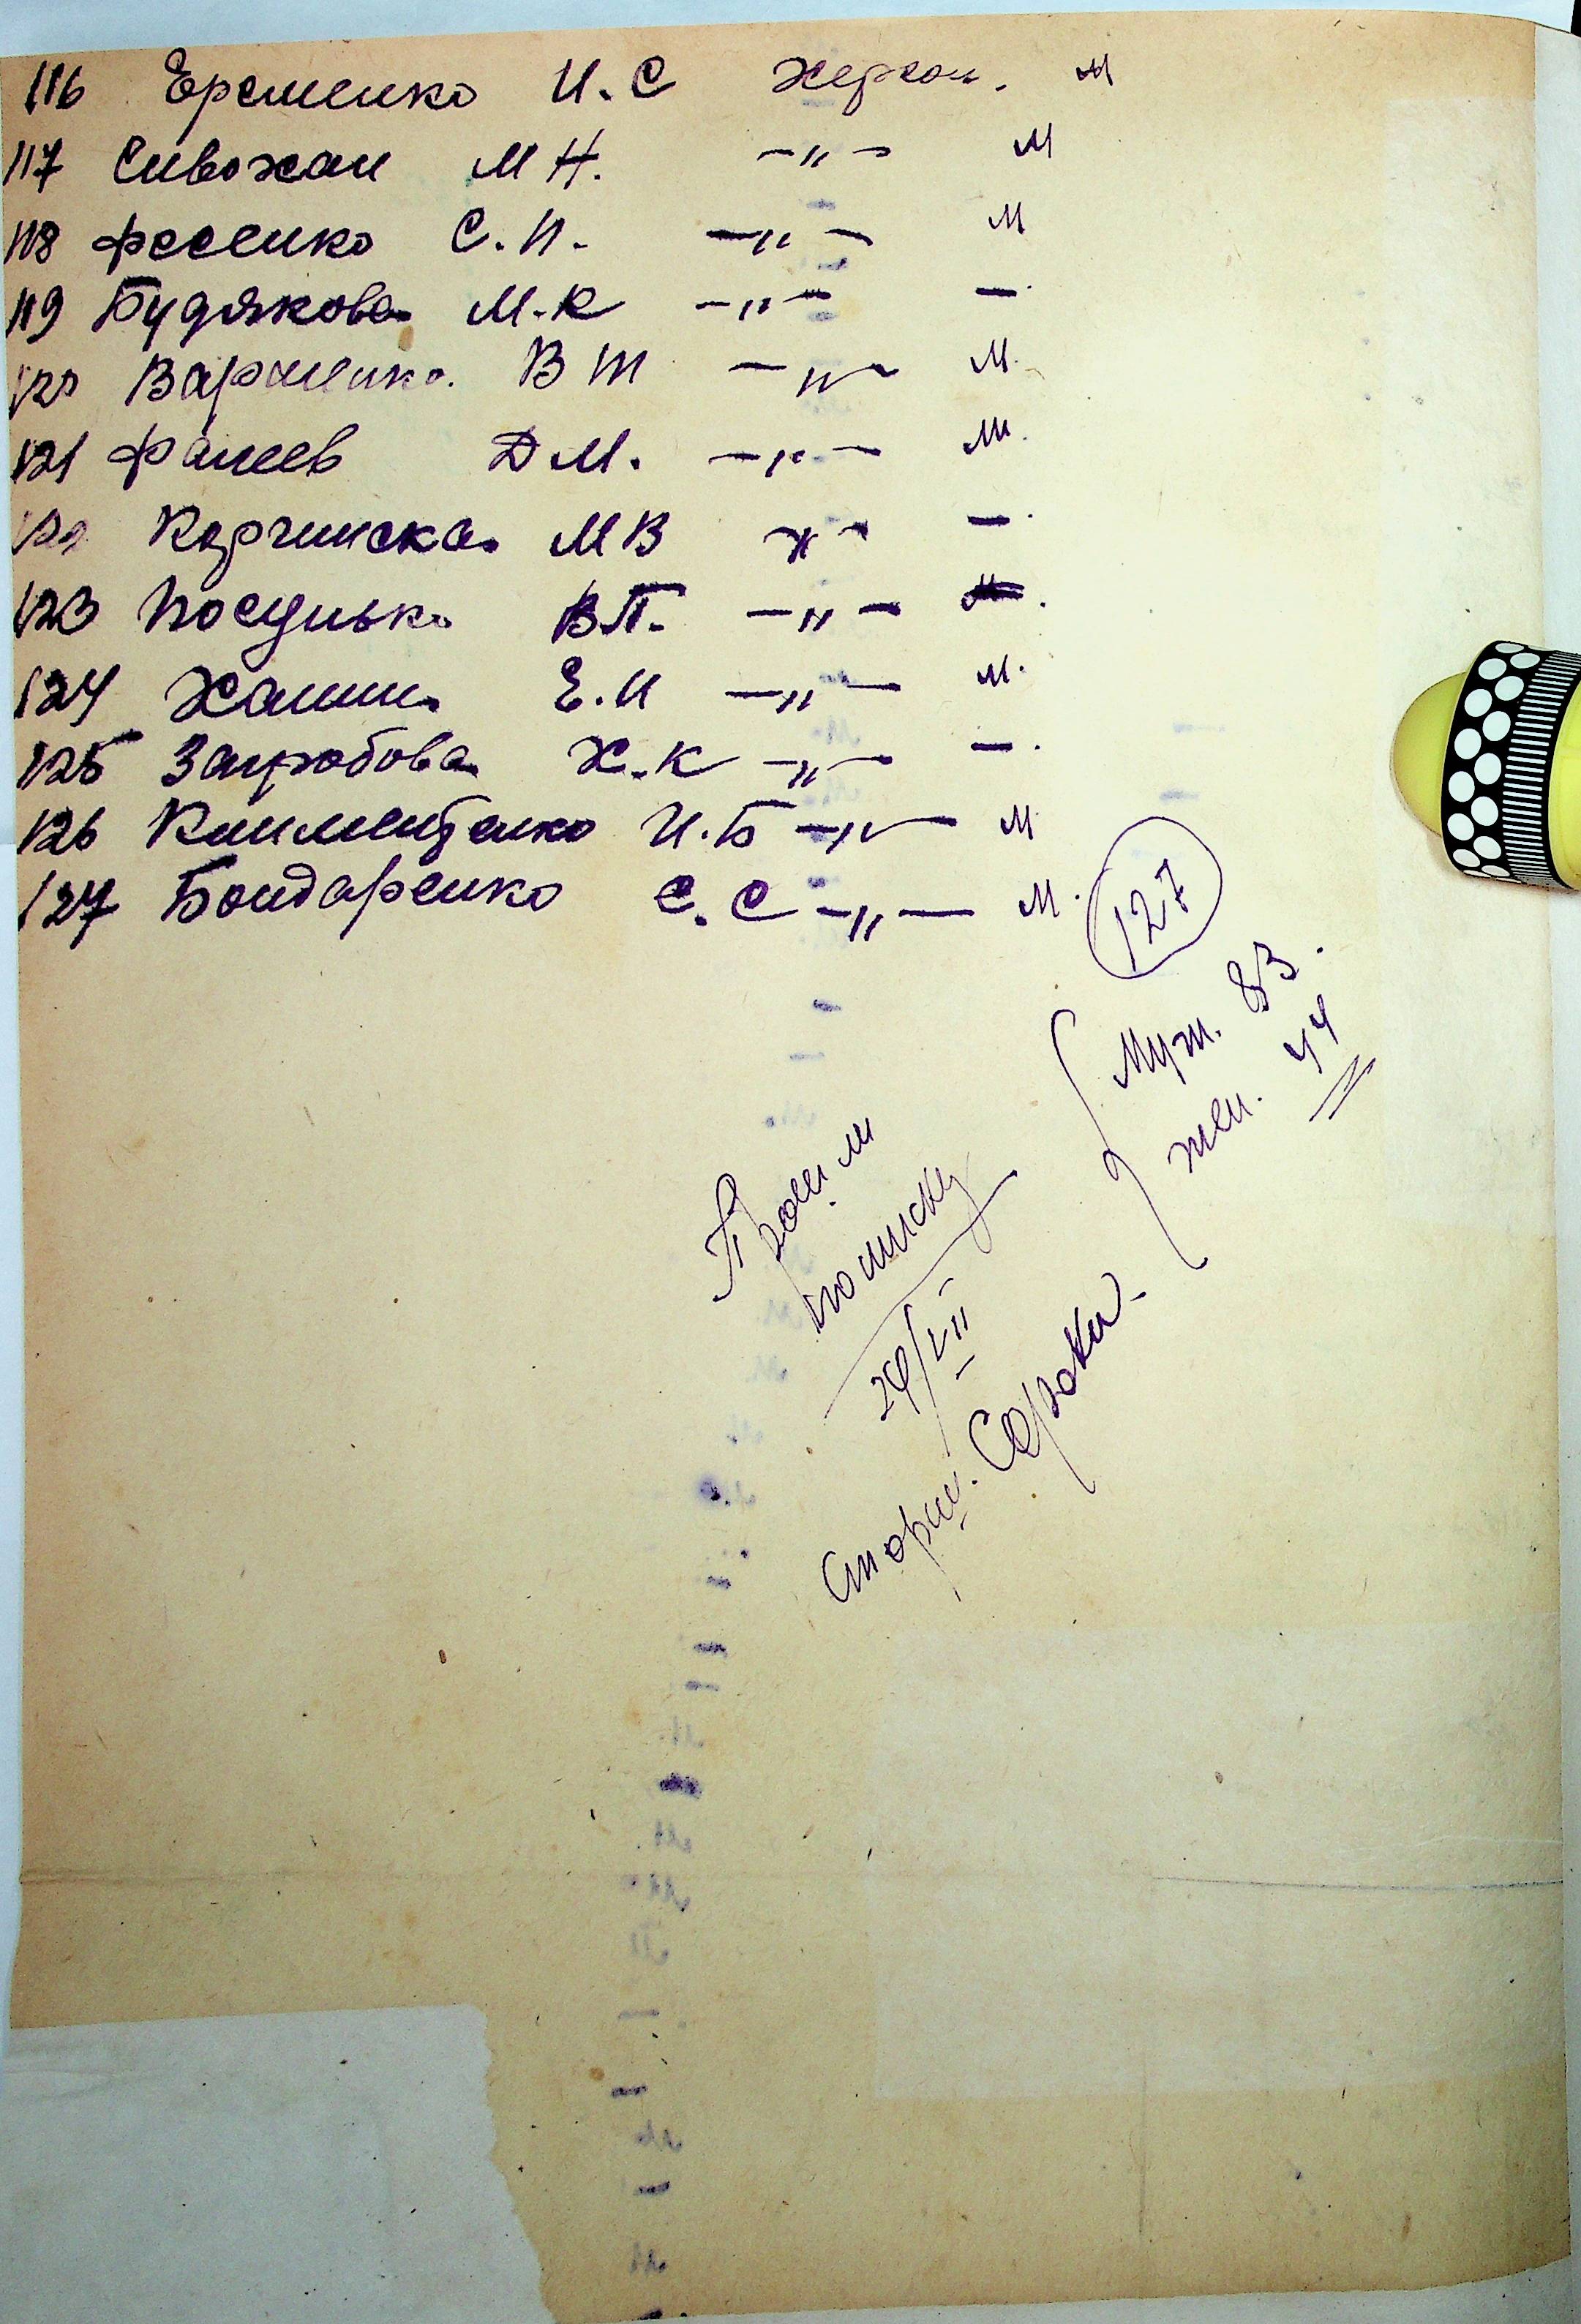 116 Еременко И.С Херсон. М
117 Сивохан М Н. –„– М
118 Фесенко С.И. –„– М
119 Будякова М.К –„– –.
120 Вараченко. В Т –„– М.
121 Фатеев Д М. –„– М.
122 Корчинска. М В „– –.
123 Посунько В П. –„– М.
124 Хашин. Е.И –„– М.
125 Загробова Х.К –„– –.
126 Климентенко И.Б –„– М
127 Бондаренко С.С –„– М.
127
Муж. 83.
жен. 44
29/VII
Сорока